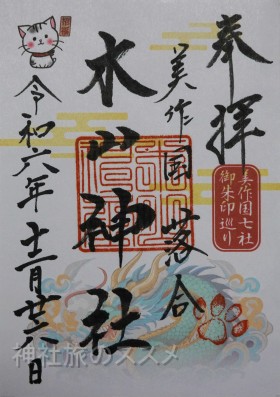 奉拝
美作国七社
御朱印巡り
美作国落合
木山神社
令和六年十二月廿六日
神社旅のススメ